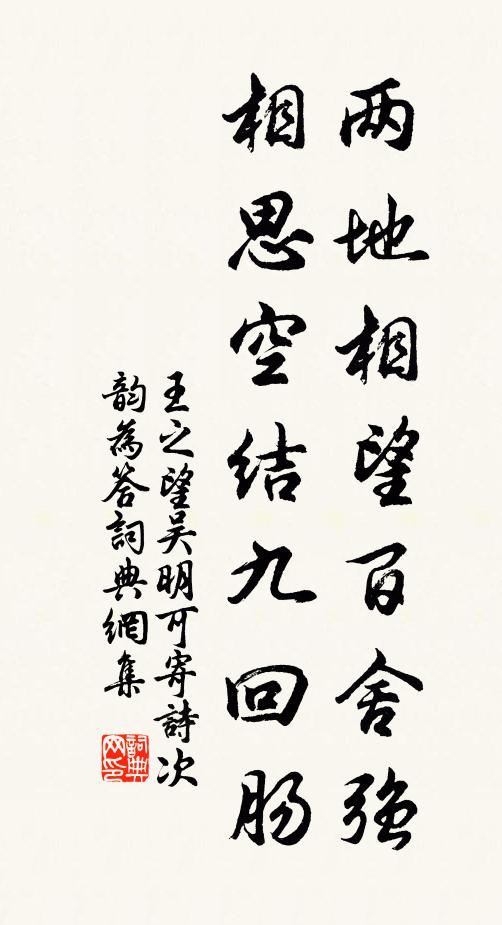 两地相望百舍强
相思空结九回肠
王之望吴明可寄詩次
韵為答詞典網集
詞典网印